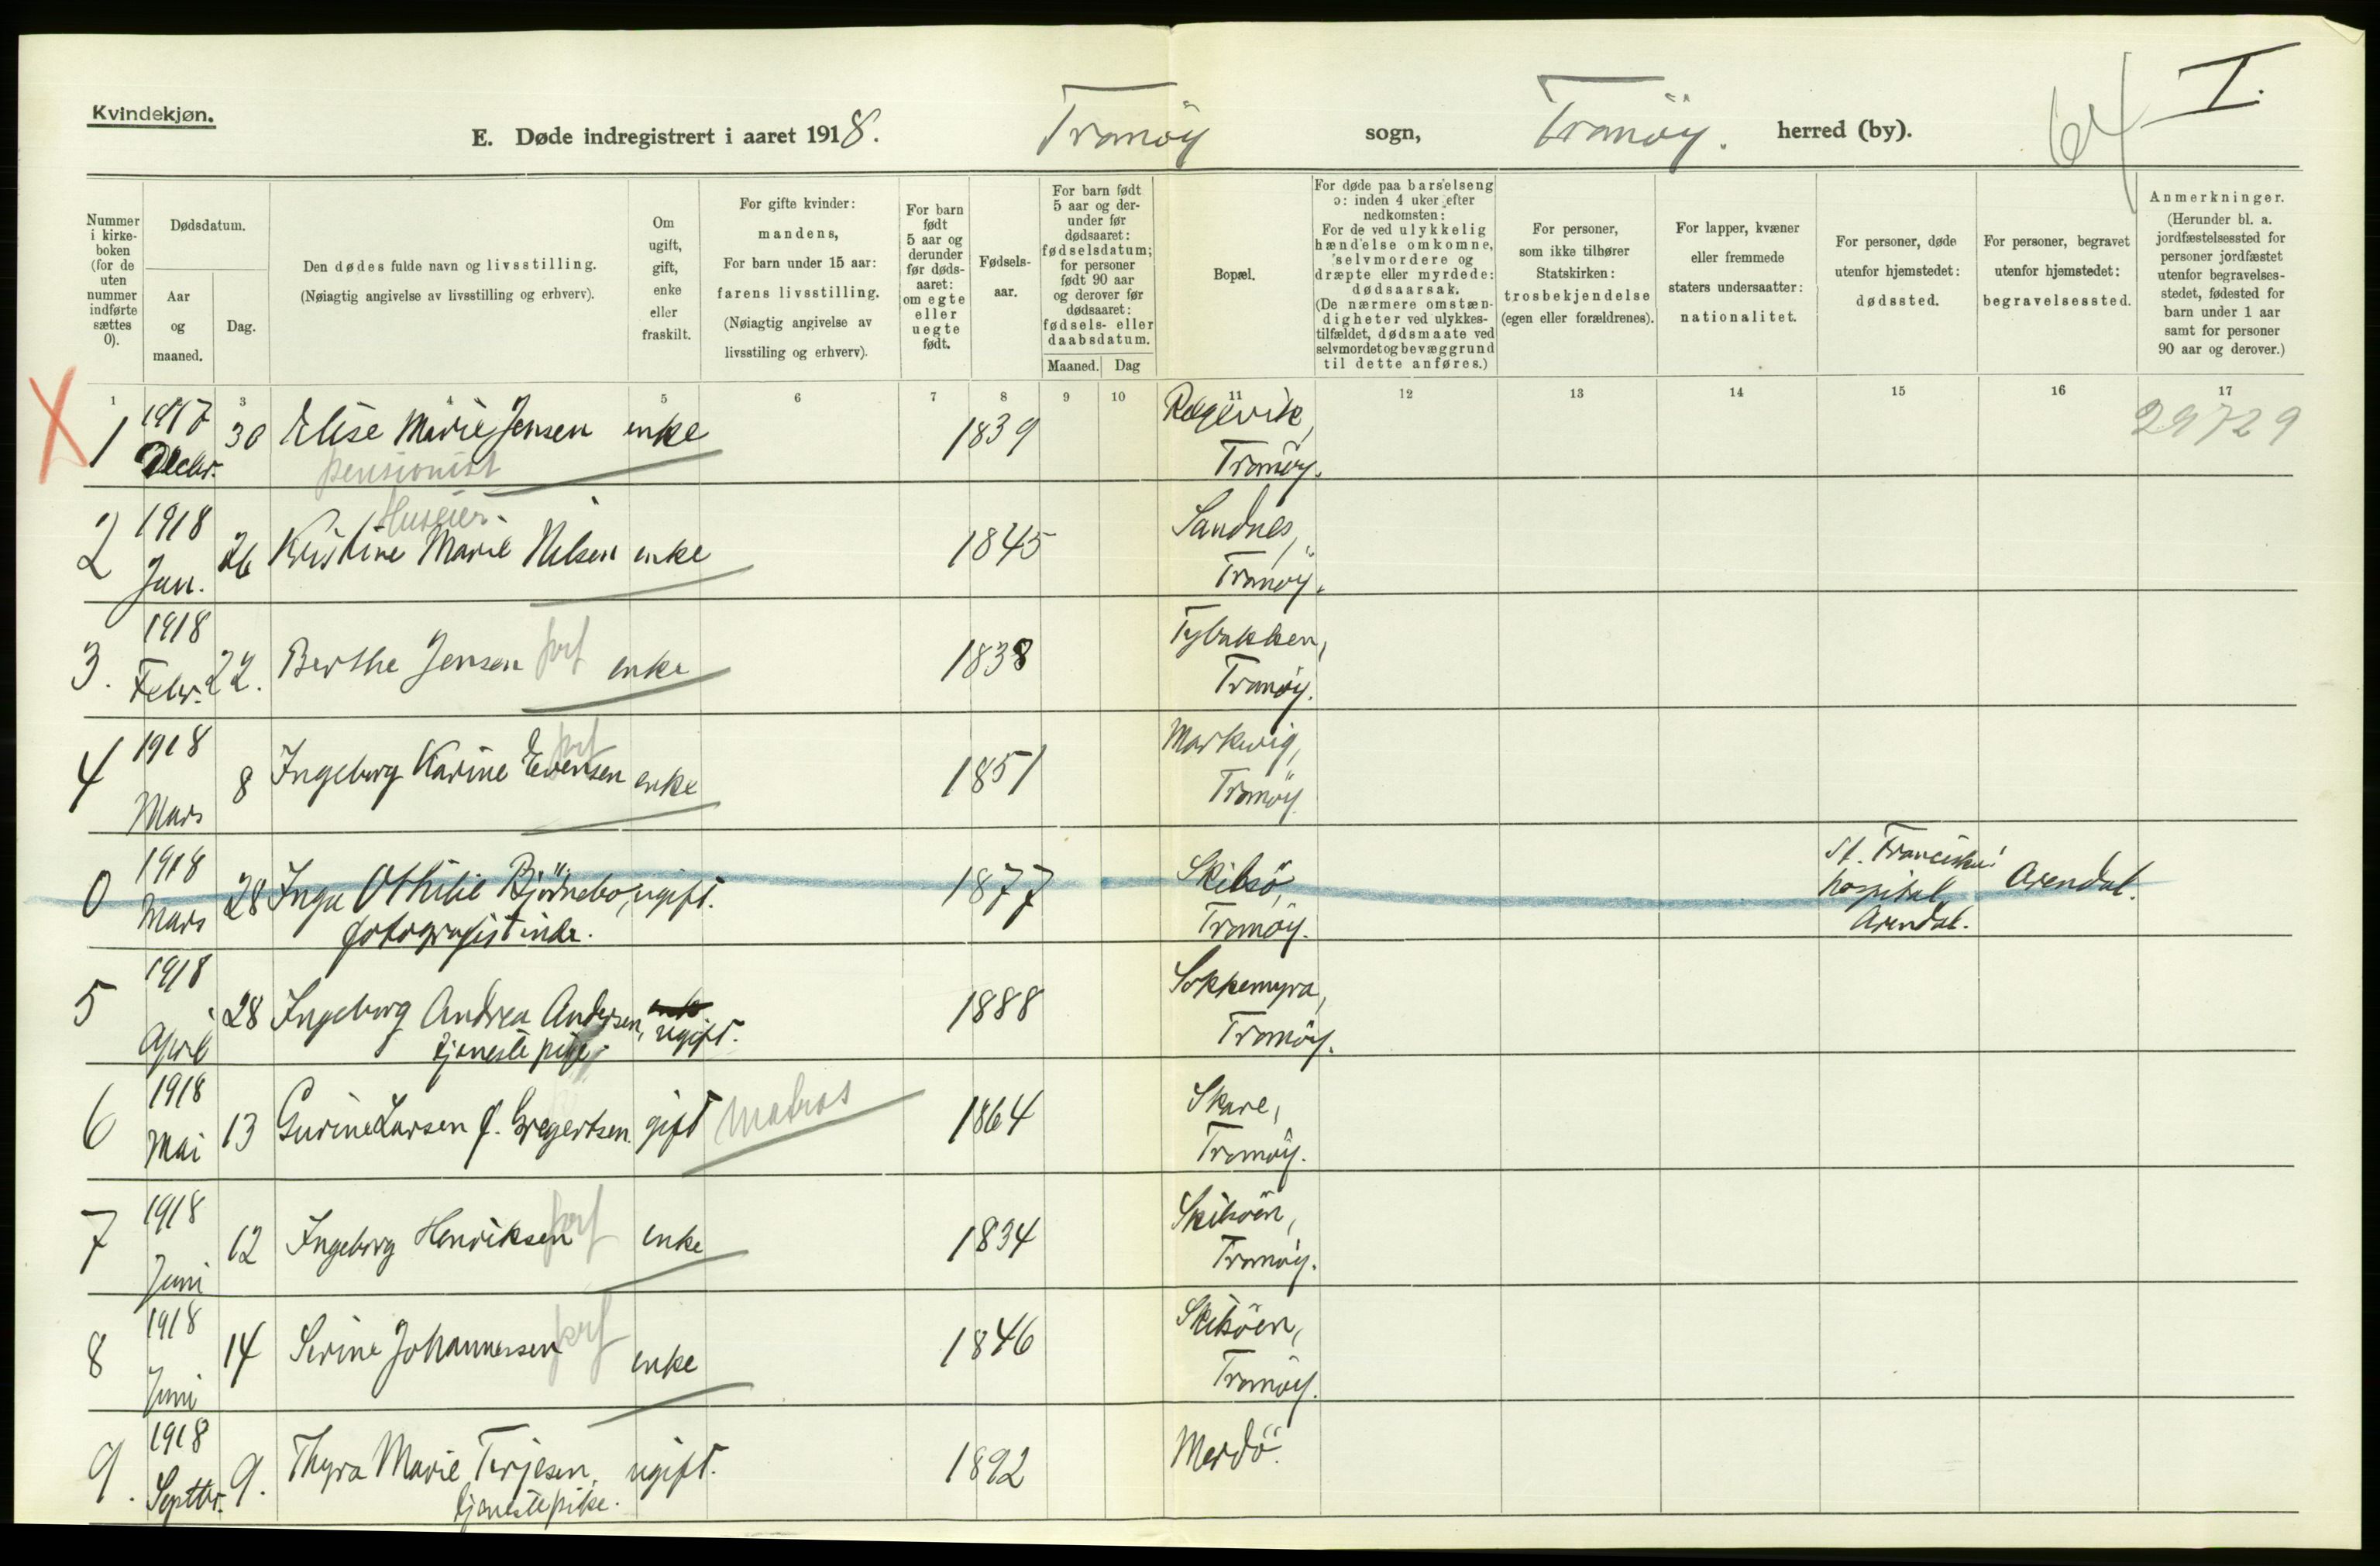 Kvindekjøn.
E. Døde indregistrert i aaret 1918. Tromöy sogn, Tromöy. herred (by).
64 I.
Nummer i kirkeboken (for de uten nummer indførte sættes 0).
Dødsdatum.
Aar og maaned.
Dag.
Den dødes fulde navn og livsstilling.
(Nøiagtig angivelse av livsstilling og erhverv).
Om ugift, gift, enke eller fraskilt.
For gifte kvinder: mandens,
For barn under 15 aar: farens livsstilling.
(Nøiagtig angivelse av livsstiling og erhverv).
For barn født 5 aar og derunder før dødsaaret: om egte eller uegte født.
Fødselsaar.
For barn født 5 aar og derunder før dødsaaret: fødselsdatum; for personer født 90 aar og derover før dødsaaret: fødsels- eller daabsdatum.
Maaned. Dag
Bopæl.
For døde paa barselseng ɔ: inden 4 uker efter nedkomsten:
For de ved ulykkelig hændelse omkomne, selvmordere og dræpte eller myrdede: dødsaarsak.
(De nærmere omstændigheter ved ulykkestilfældet, dødsmaate ved selvmordet og bevæggrund til dette anføres.)
For personer, som ikke tilhører Statskirken: trosbekjendelse (egen eller forældrenes).
For lapper, kvæner eller fremmede staters undersaatter: nationalitet.
For personer, døde utenfor hjemstedet: dødssted.
For personer, begravet utenfor hjemstedet: begravelsessted.
Anmerkninger.
(Herunder bl. a. jordfæstelsessted for personer jordfæstet utenfor begravelsesstedet, fødested for barn under 1 aar samt for personer 90 aar og derover.)
1 3 4 5 6 7 8 9 10 11 12 13 14 15 16 17
1 1917 Decbr. 30 Elise Marie Jensen enke 1839 Revesvik, Tromöy. 29729
pensionist
Huseier.
2 1918 Jan. 26 Kristine Marie Nilsen enke 1845 Sandnes, Tromöy.
3. 1918 Febr. 22. Berthe Jensen forf enke 1838 Tybakken, Tromöy.
4 1918 Mars 8 Ingeborg Karine Evensen forf enke 1851 Markevig, Tromöy
0 1918 Mars 28 Inga Othilie Björnebo, ugift. 1877 Skilsö, Tromöy. St. Franciskus' hospital Arendal. Arendal.
fotografistinde.
5 1918 April 28 Ingeborg Andrea Andersen, ugift. 1888 Sokkemyra, Tromöy.
tjenestepige.
6 1918 Mai 13 Gurine Larsen f. Gregertsen. gift matros 1864 Skare, Tromöy.
7 1918 Juni 12 Ingeborg Henriksen forf enke 1834 Skilsöen, Tromöy.
8 1918 Juni 14 Serine Johannessen forf enke 1846 Skilsöen, Tromöy.
9. 1918 Septbr. 9. Thyra Marie Terjesen, ugift. 1892 Merdö.
tjenestepike.